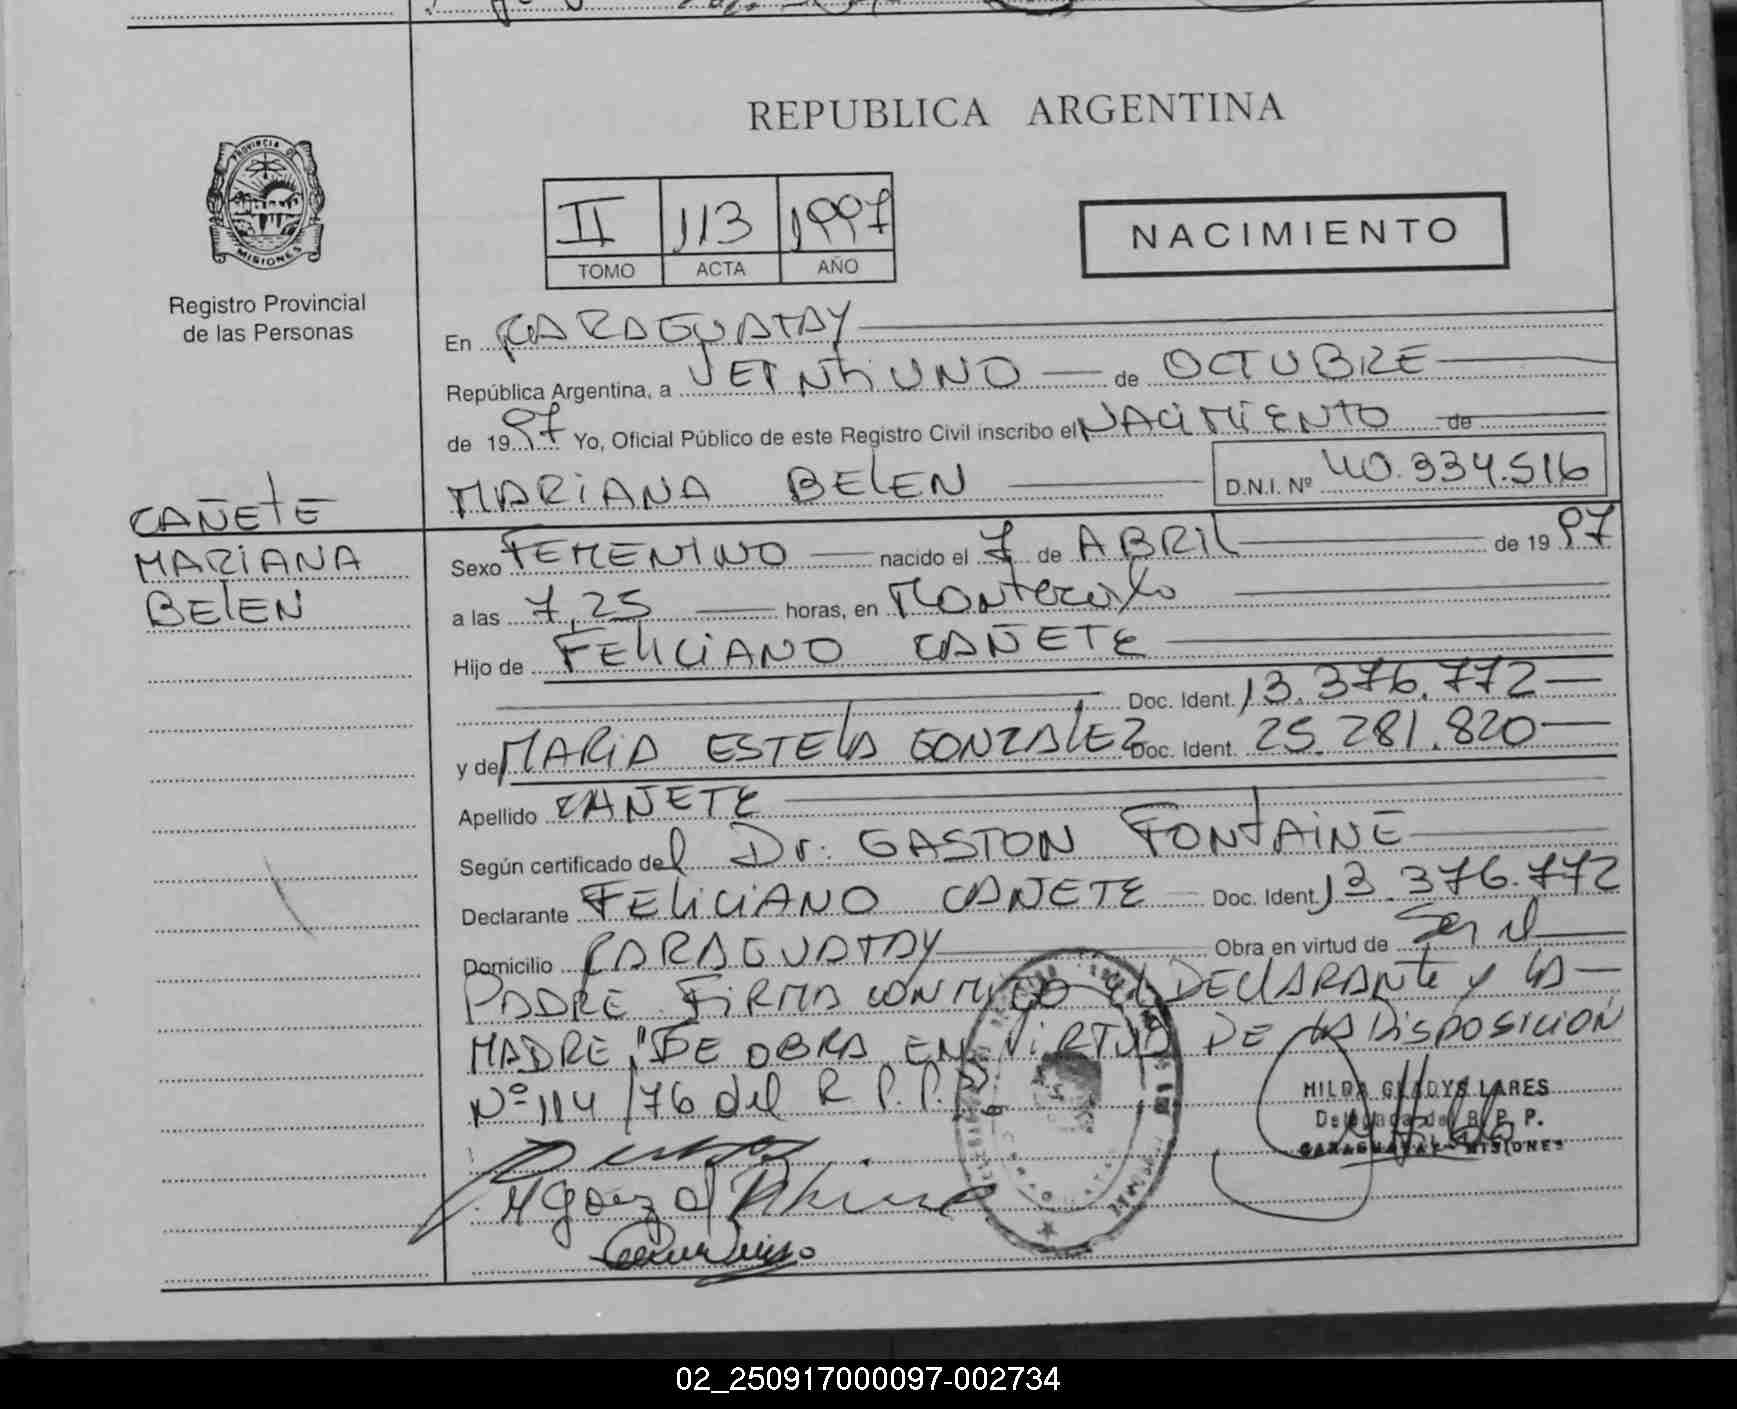 PROVINCIA DE
MISIONES
Registro Provincial
de las Personas
CAÑETE
MARIANA
BELEN
REPUBLICA ARGENTINA
II 113 1997
TOMO ACTA AÑO
NACIMIENTO
En CARAGUATAY
República Argentina, a VEINtiUNO de OCTUBRE
de 19 97 Yo, Oficial Público de este Registro Civil inscribo el NACIMIENTO de
MARIANA BELEN D.N.I. Nº 40.334.516
Sexo FEMENINO nacido el 7 de ABRIL de 19 97
a las 7,25 horas, en Montecarlo
Hijo de FELICIANO CAÑETE
Doc. Ident. 13.376.772
y de MARIA ESTELA GONZALEZ Doc. Ident. 25.281.820
Apellido CAÑETE
Según certificado del Dr. GASTON FONTAINE
Declarante FELICIANO CAÑETE Doc. Ident. 13.376.772
Domicilio CARAGUATAY Obra en virtud de Ser el
PADRE FIRMA CONMIGO El DEClARANte y LA
MADRE, "SE OBRA EN VIRTUD DE LA DISPOSICION
Nº 114/76 del R.P.P.
HILDA GLADYS LARES
Delegada del R. P. P.
CARAGUATAY - MISIONES
02_250917000097-002734